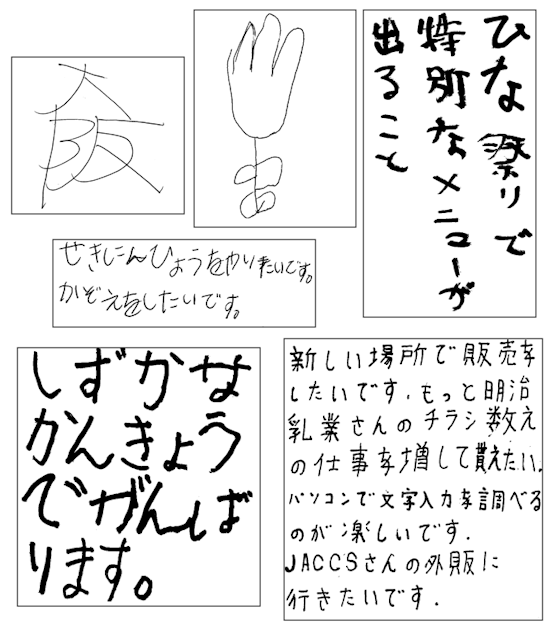 大
阪
ひな祭りで
特別なメニューが
出ること
せきにんひょうをやりたいです。
かぞえをしたいです。
しずかな
かんきょう
でがんば
ります。
新しい場所で販売を
したいです.もっと明治
乳業さんのチラシ数え
の仕事を増して貰えたい.
パソコンで文字入力を調べる
のが楽しいです.
JACCSさんの外販に
行きたいです.